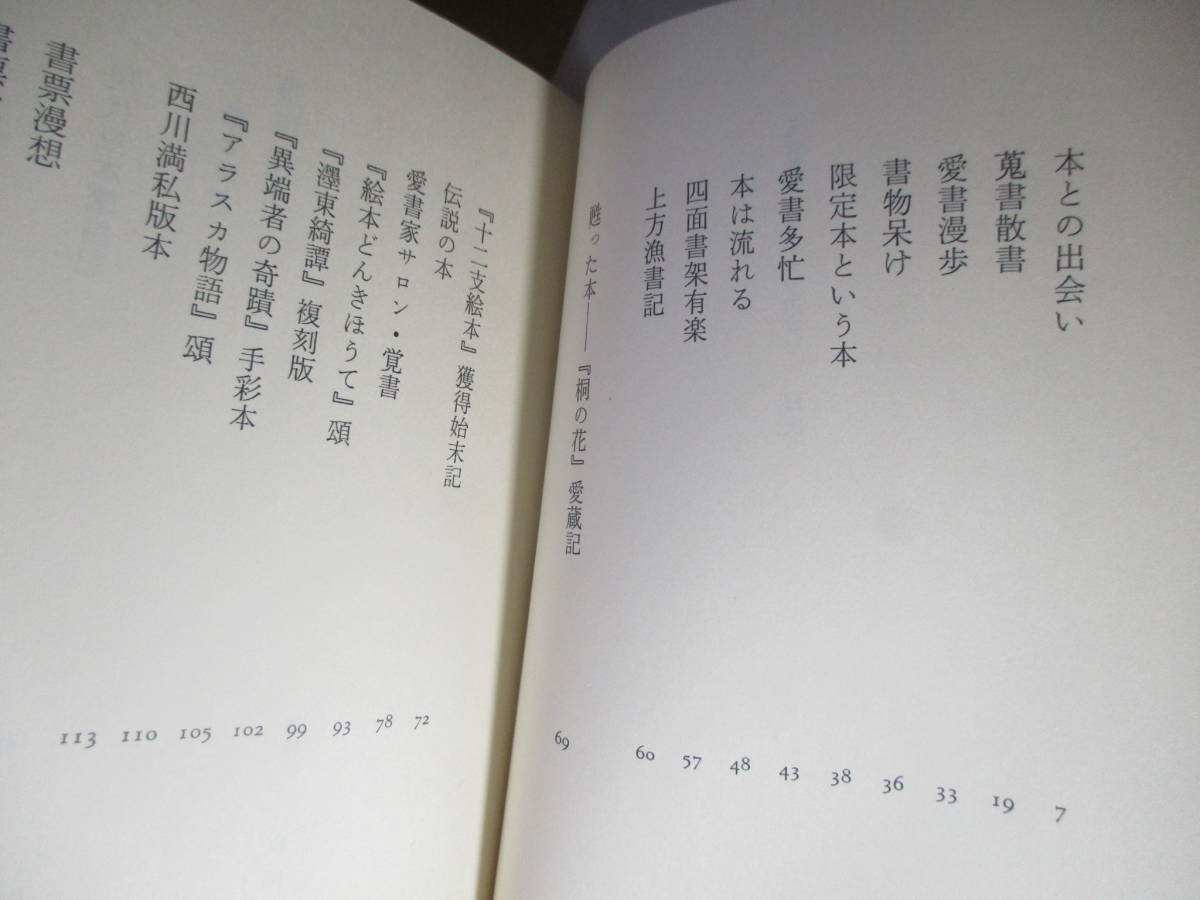 本との出会い 7
蒐書散書 19
愛書漫歩 33
書物呆け 36
限定本という本 38
愛書多忙 43
本は流れる 48
四面書架有楽 57
上方漁書記 60
甦った本――『桐の花』愛蔵記 69
『十二支絵本』獲得始末記 72
伝説の本 78
愛書家サロン・覚書 93
『絵本どんきほうて』頌 99
『濹東綺譚』複刻版 102
『異端者の奇蹟』手彩本 105
『アラスカ物語』頌 110
西川満私版本 113
書票漫想